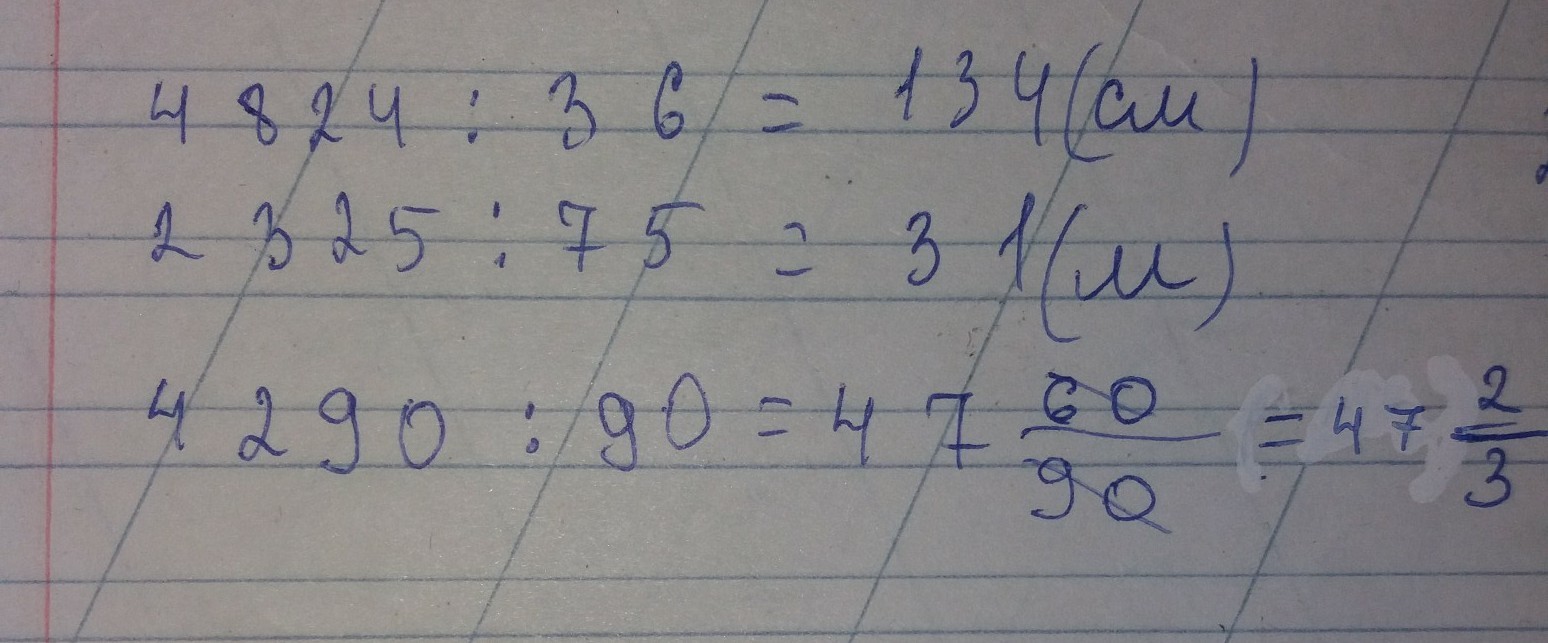 4824 : 36 = 134 (см)
2325 : 75 = 31 (м)
4290 : 90 = 47 60/90 = 47 2/3